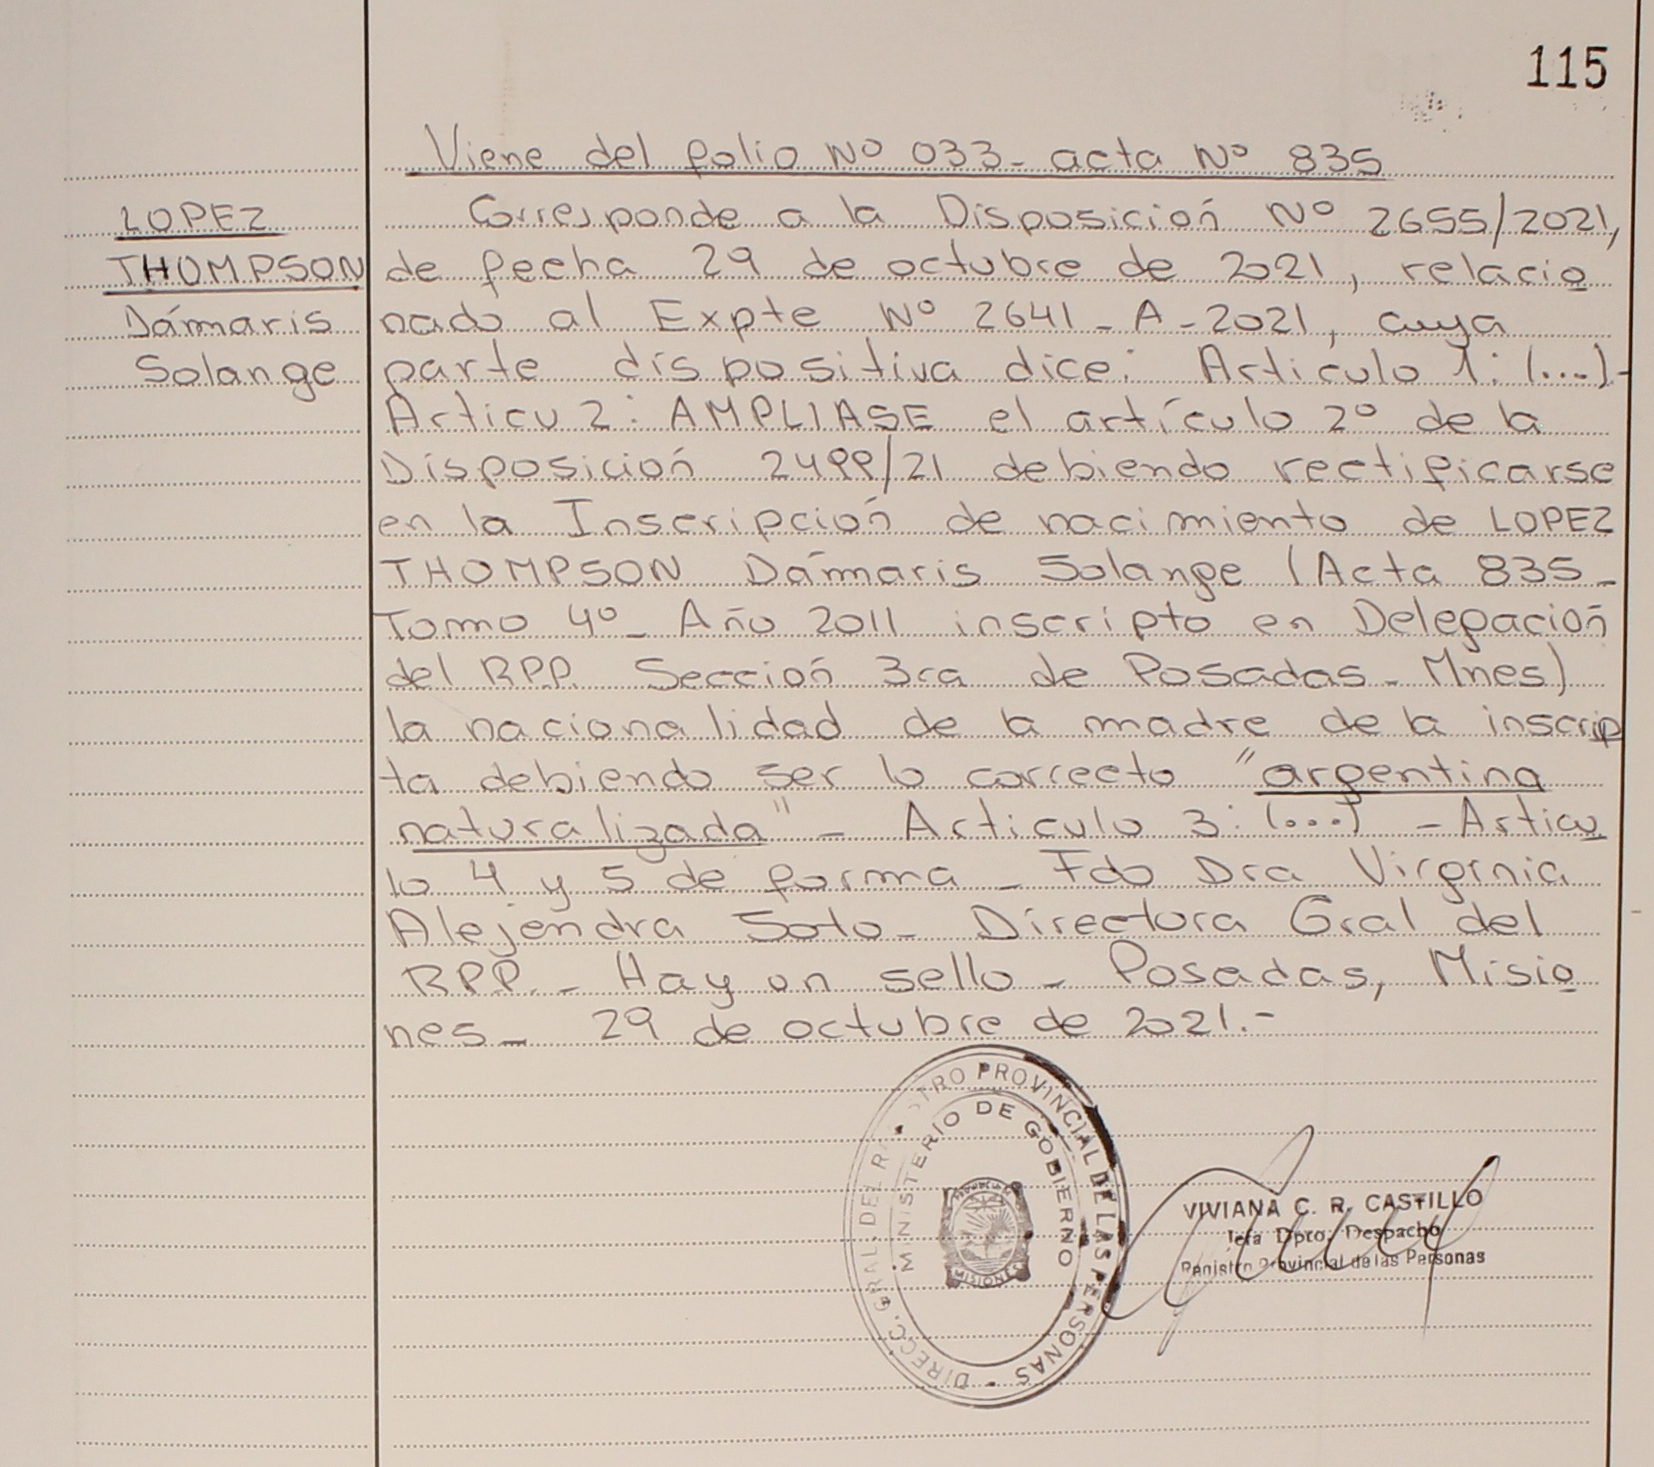 115
Viene del folio Nº 033 - acta Nº 835
LOPEZ
THOMPSON
Dámaris
Solange
Corresponde a la Disposición Nº 2655/2021,
de fecha 29 de octubre de 2021, relacio
nado al Expte Nº 2641 - A - 2021, cuya
parte dispositiva dice: Articulo 1: (....)-
Articu 2: AMPLIASE el artículo 2º de la
Disposición 2499/21 debiendo rectificarse
en la Inscripción de nacimiento de LOPEZ
THOMPSON Dámaris Solange (Acta 835 -
Tomo 4º - Año 2011 inscripto en Delegación
del RPP. Sección 3ra de Posadas - Mnes)
la nacionalidad de la madre de la inscrip
ta debiendo ser lo correcto "argentina
naturalizada" - Articulo 3: (...) - Articu
lo 4 y 5 de forma - Fdo Dra Virginia
Alejendra Soto - Directora Gral del
RPP. - Hay un sello - Posadas, Misio
nes - 29 de octubre de 2021.-
DIRECC. GRAL. DEL PROVINCIAL DE LAS PERSONAS
MINISTERIO DE GOBIERNO
MISIONES
VIVIANA C. R. CASTILLO
Jefa Dpto. Despacho
Registro Provincial de las Personas